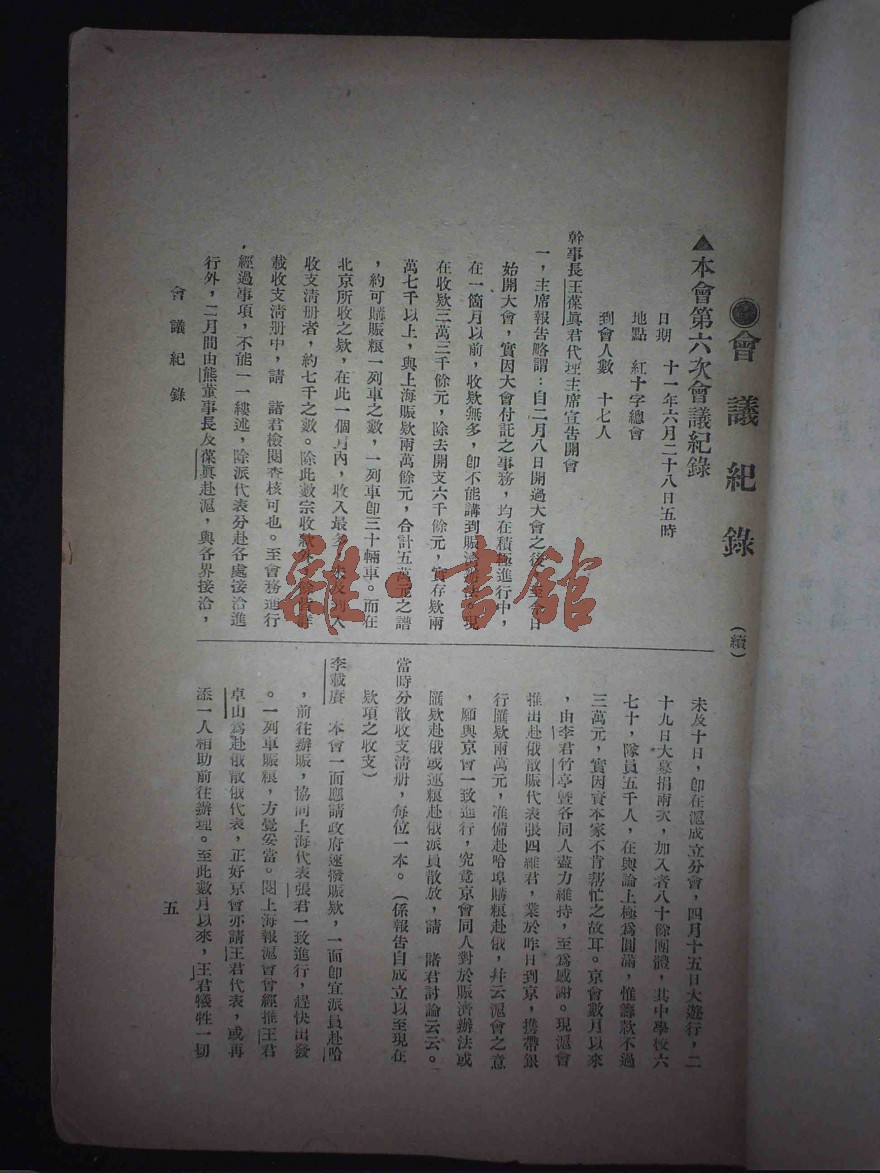 會議紀錄
(續)
▲本會第六次會議紀錄
日期　十一年六月二十八日五時
地點　紅十字總會
到會人數　十七人
幹事長王葆眞君代理主席宣告開會
一，主席報告略謂：自二月八日開過大會之後，至今日
始開大會，實因大會付託之事務，均在積極進行中，
在一箇月以前，收欵無多，卽不能講到賑濟辦法。現
在收欵三萬三千餘元，除去開支六千餘元，實存欵兩
萬七千以上，與上海賑欵兩萬餘元，合計五萬元之譜
，約可購賑粮一列車之數，一列車卽三十輛車。而在
北京所收之欵，在此一個月內，收入最多，未及列入
收支清册者，約七千之數。除此數宗收欵外，餘皆詳
載收支清册中，請　諸君檢閱查核可也。至會務進行
，經過事項，不能一一縷述，除派代表分赴各處接洽進
行外，二月間由熊董事長及葆眞赴滬，與各界接洽，
未及十日，卽在滬成立分會，四月十五日大遊行，二
十九日大募捐兩次，加入者八十餘團體，其中學校六
七十，隊員五千人，在輿論上極爲圓滿，惟籌款不過
三萬元，實因資本家不肯幫忙之故耳。京會數月以來
，由李君竹亭曁各同人盡力維持，至爲感謝。現滬會
推出赴俄散賑代表張四維君，業於昨日到京，携帶銀
行匯欵兩萬元，准備赴哈埠購粮赴俄，幷云滬會之意
，願與京會一致進行，究竟京會同人對於賑濟辦法或
匯欵赴俄或運粮赴俄派員散放，請　諸君討論云云。
當時分散收支清册，每位一本。（係報告自成立以至現在
欵項之收支）
李載賡　本會一面應請政府速撥賑欵，一面卽宜派員赴哈
，前往辦賑，協同上海代表張君一致進行，趕快出發
。一列車賑粮，方覺妥當。閱上海報滬會曾經推王君
卓山爲赴俄散俄代表，正好京會亦請王君代表，或再
添一人相助前往辦理。至此數月以來，王君犧牲一切
會議紀錄
五
雜·書館